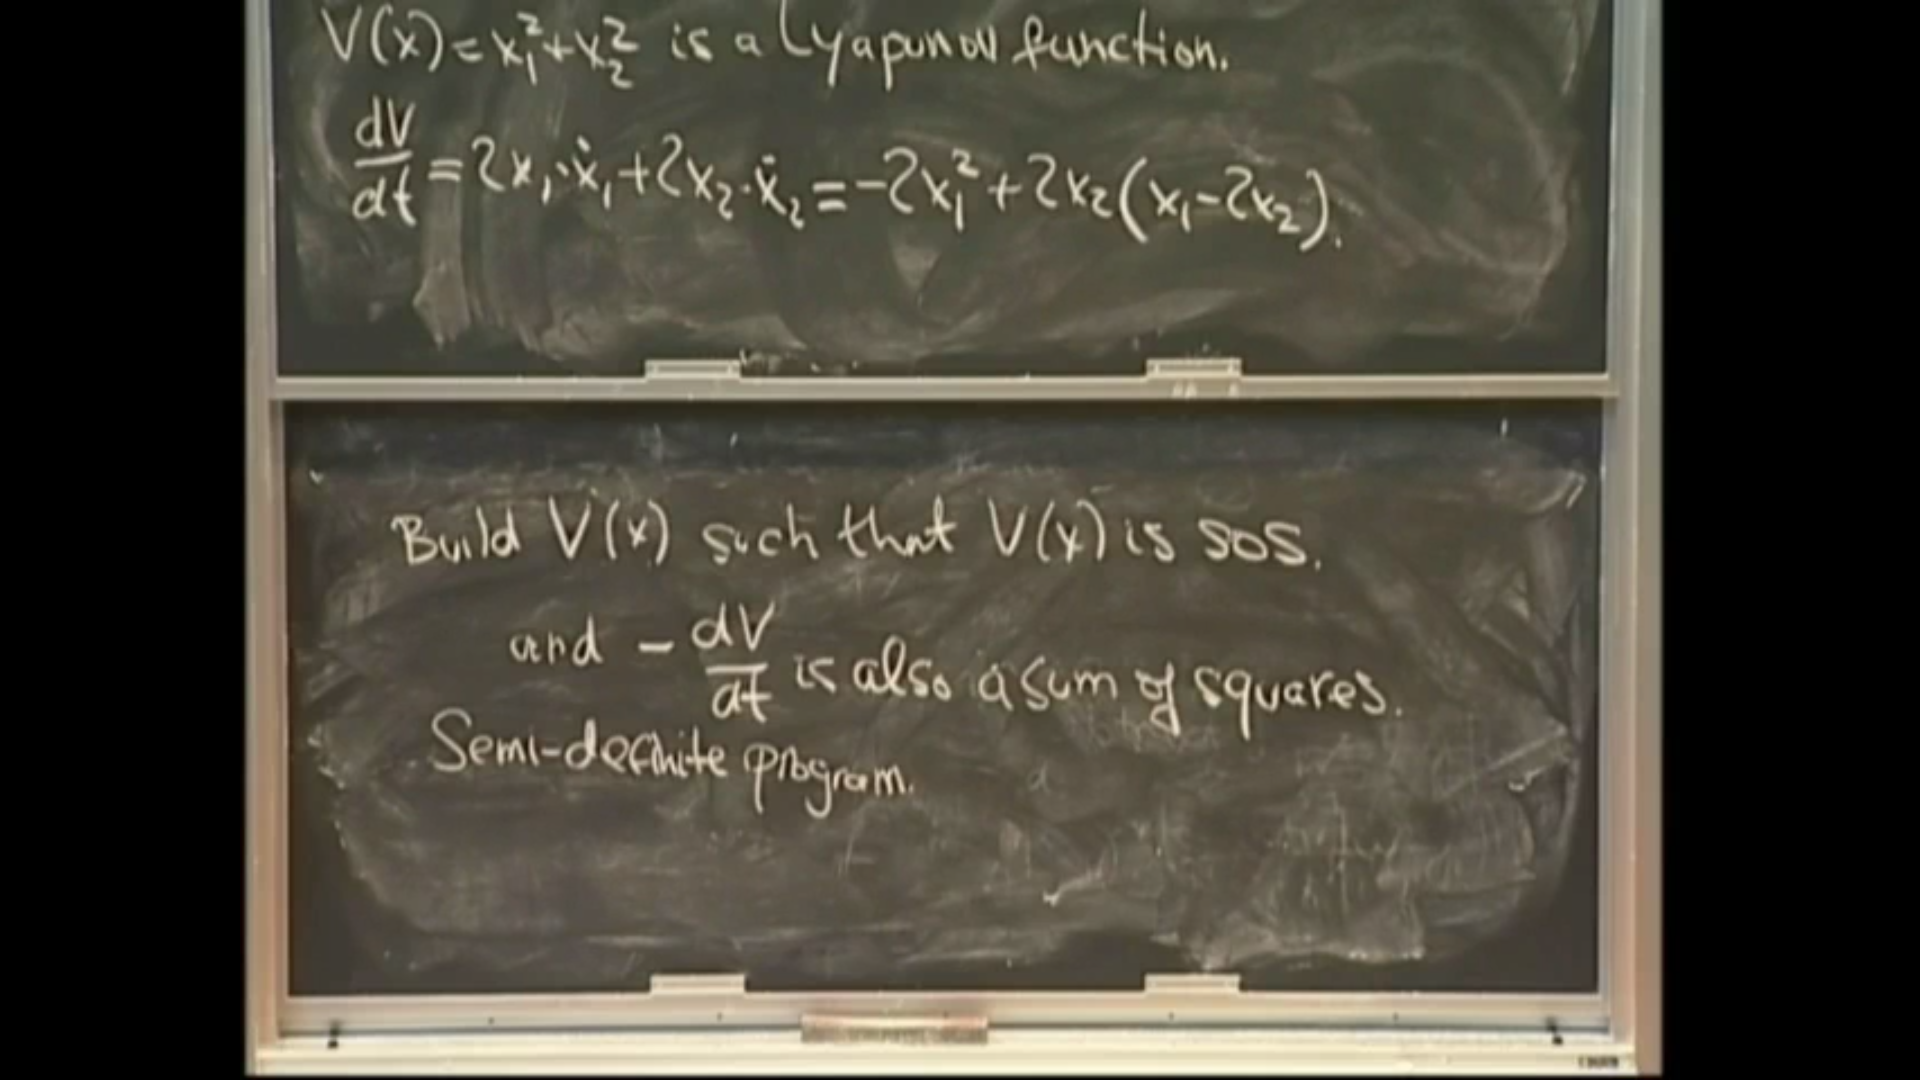 V(x) = x₁² + x₂² is a Lyapunov function.
dV/dt = 2x₁·ẋ₁ + 2x₂·ẋ₂ = -2x₁² + 2x₂(x₁ - 2x₂).
Build V(x) such that V(x) is SOS.
and - dV/dt is also a sum of squares.
Semi-definite program.